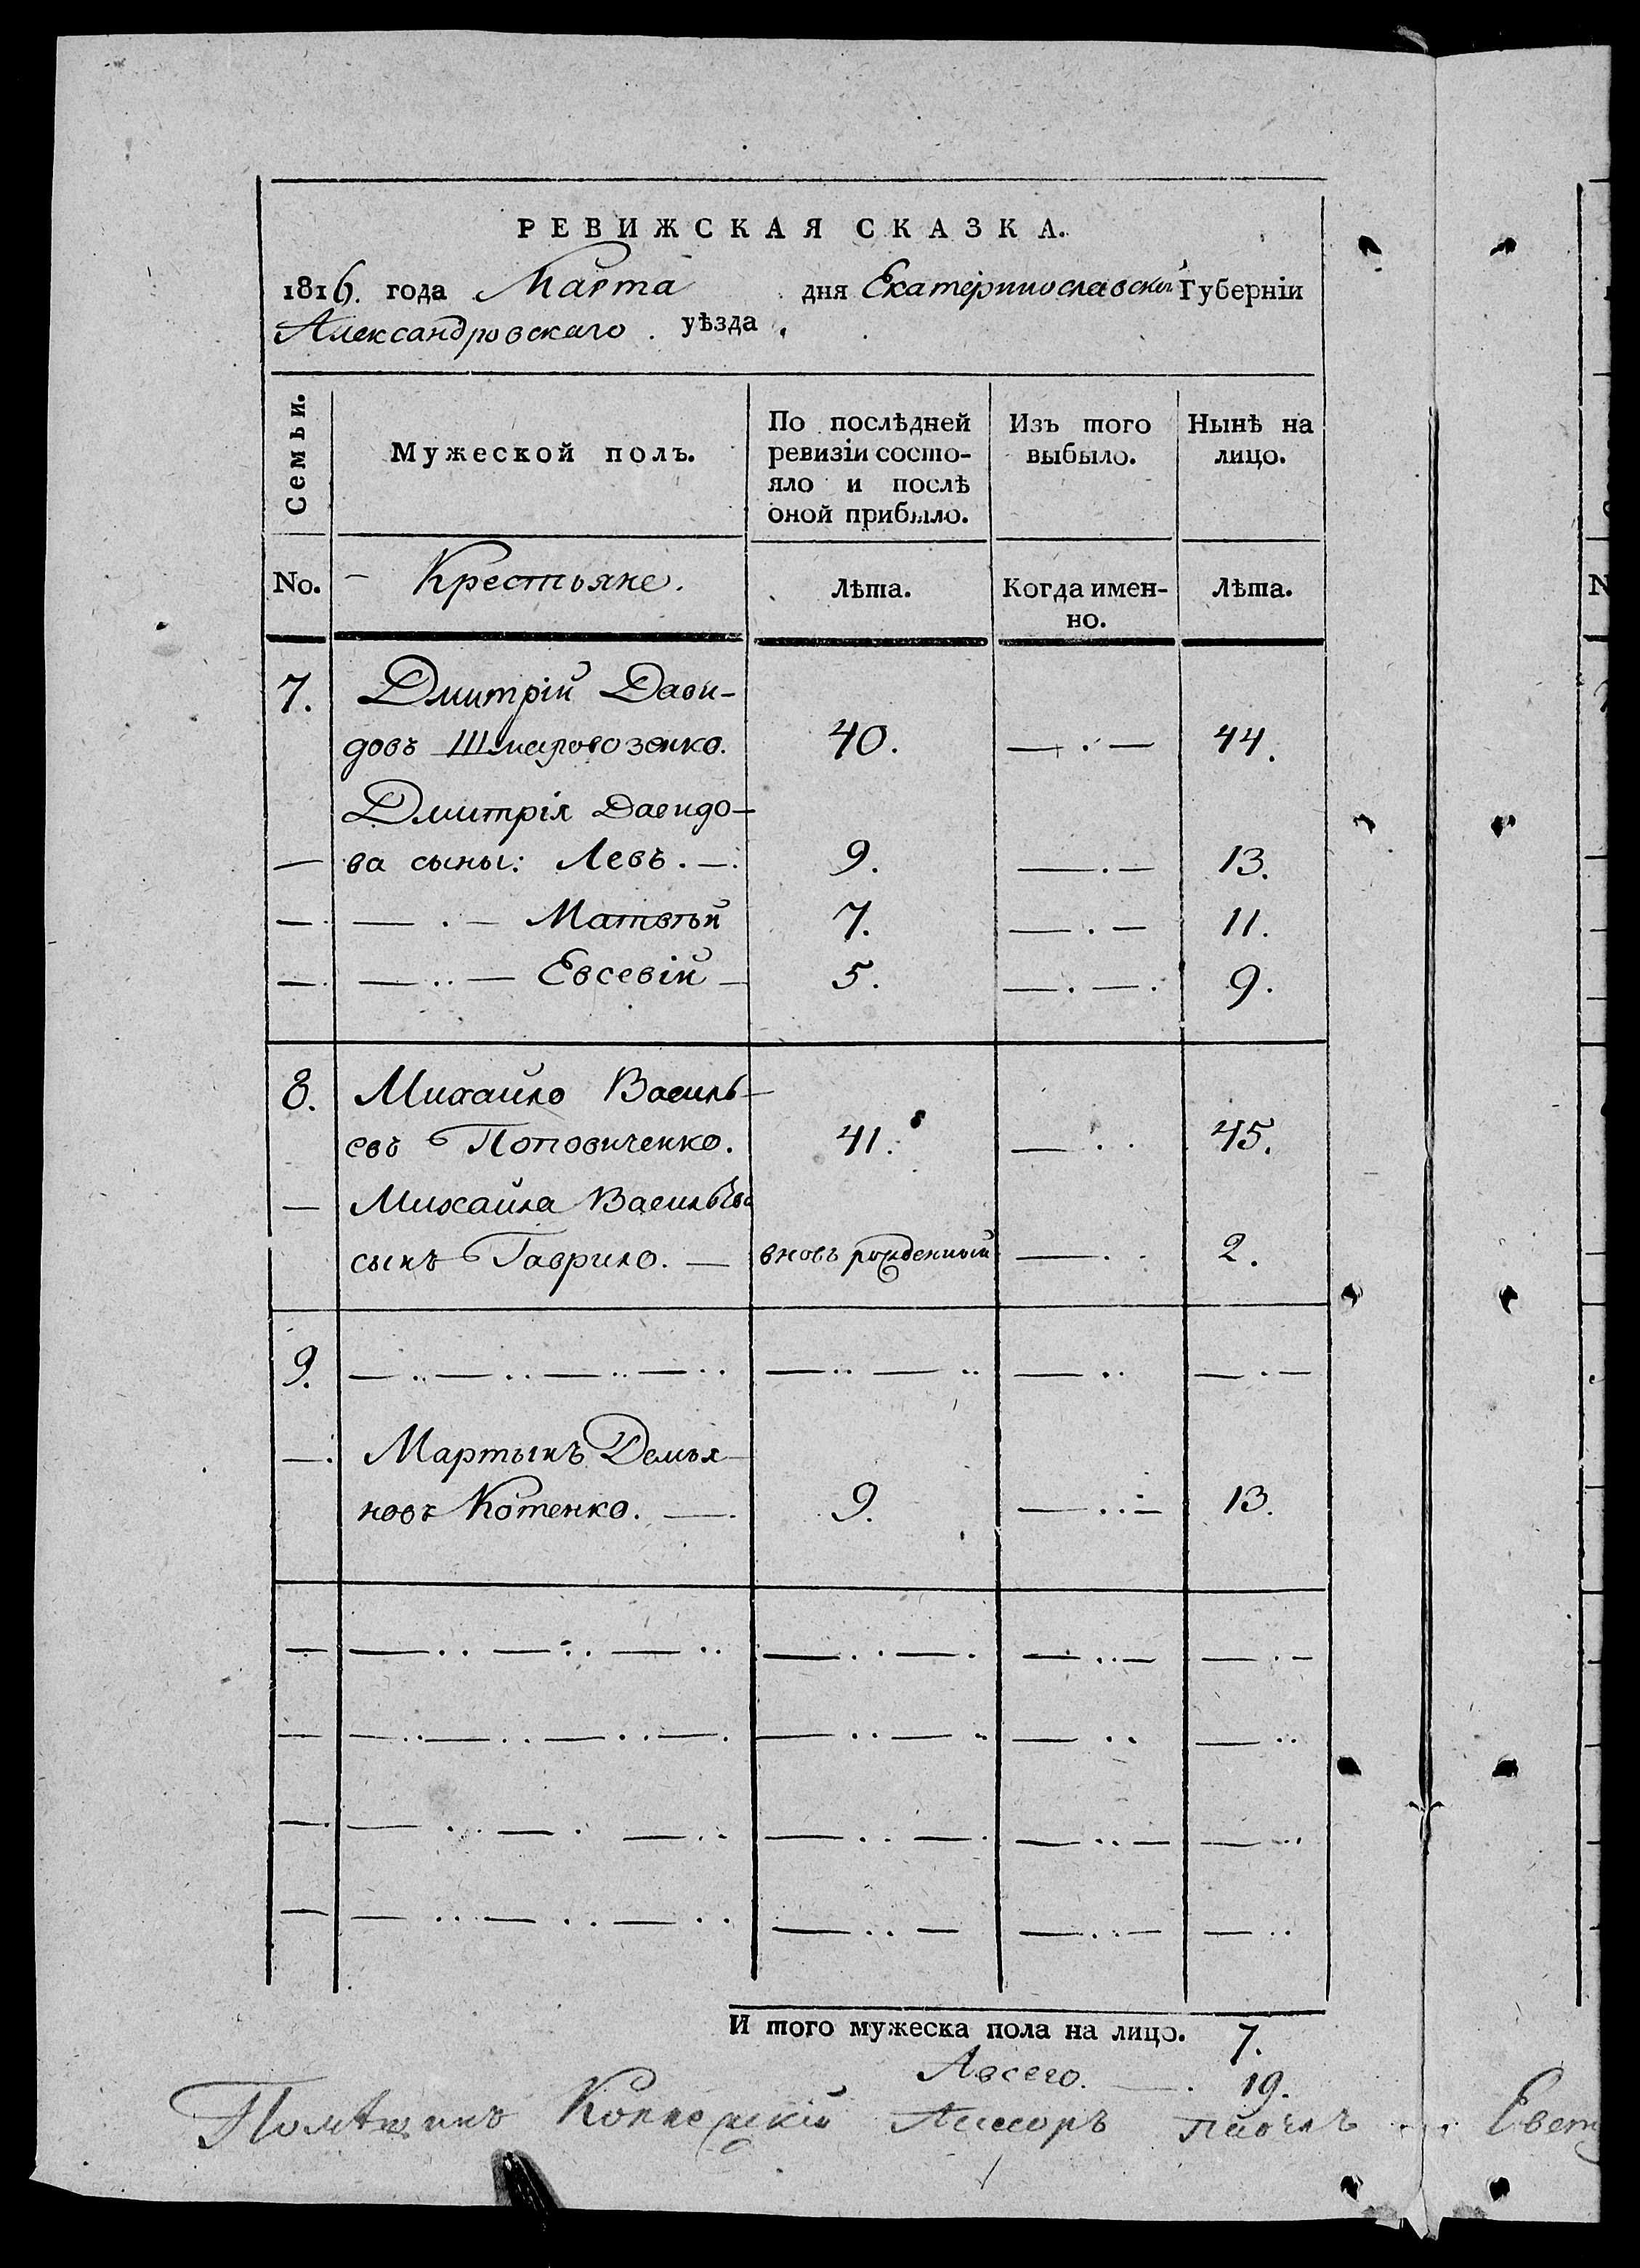 РЕВИЖСКАЯ СКАЗКА.
1816. года Марта дня Екатеринославской Губернїи
Александровскаго уѣзда
Семьи. Мужеской полъ. По послѣдней ревизїи состо- Изъ того выбыло. Нынѣ на лицо.
яло и послѣ
оной прибыло.
No. Крестьяне. Лѣта. Когда имен- Лѣта.
но.
7. Дмитрій Дави-
довъ 40. 44.
Дмитрія Давидо-
ва сыны: Левъ. 9. 13.
Матвѣй 7. 11.
Евсевій 5. 9.
8. Михайло Василь-
евъ Поповиченко. 41. 45.
Михайла Васильева
сынъ Гаврило. вновь рожденный 2.
9.
Мартынъ Демья-
новъ Котенко. 9. 13.
И того мужеска пола на лицо. 7.
Авсего. 19.
Помѣщикъ Павелъ